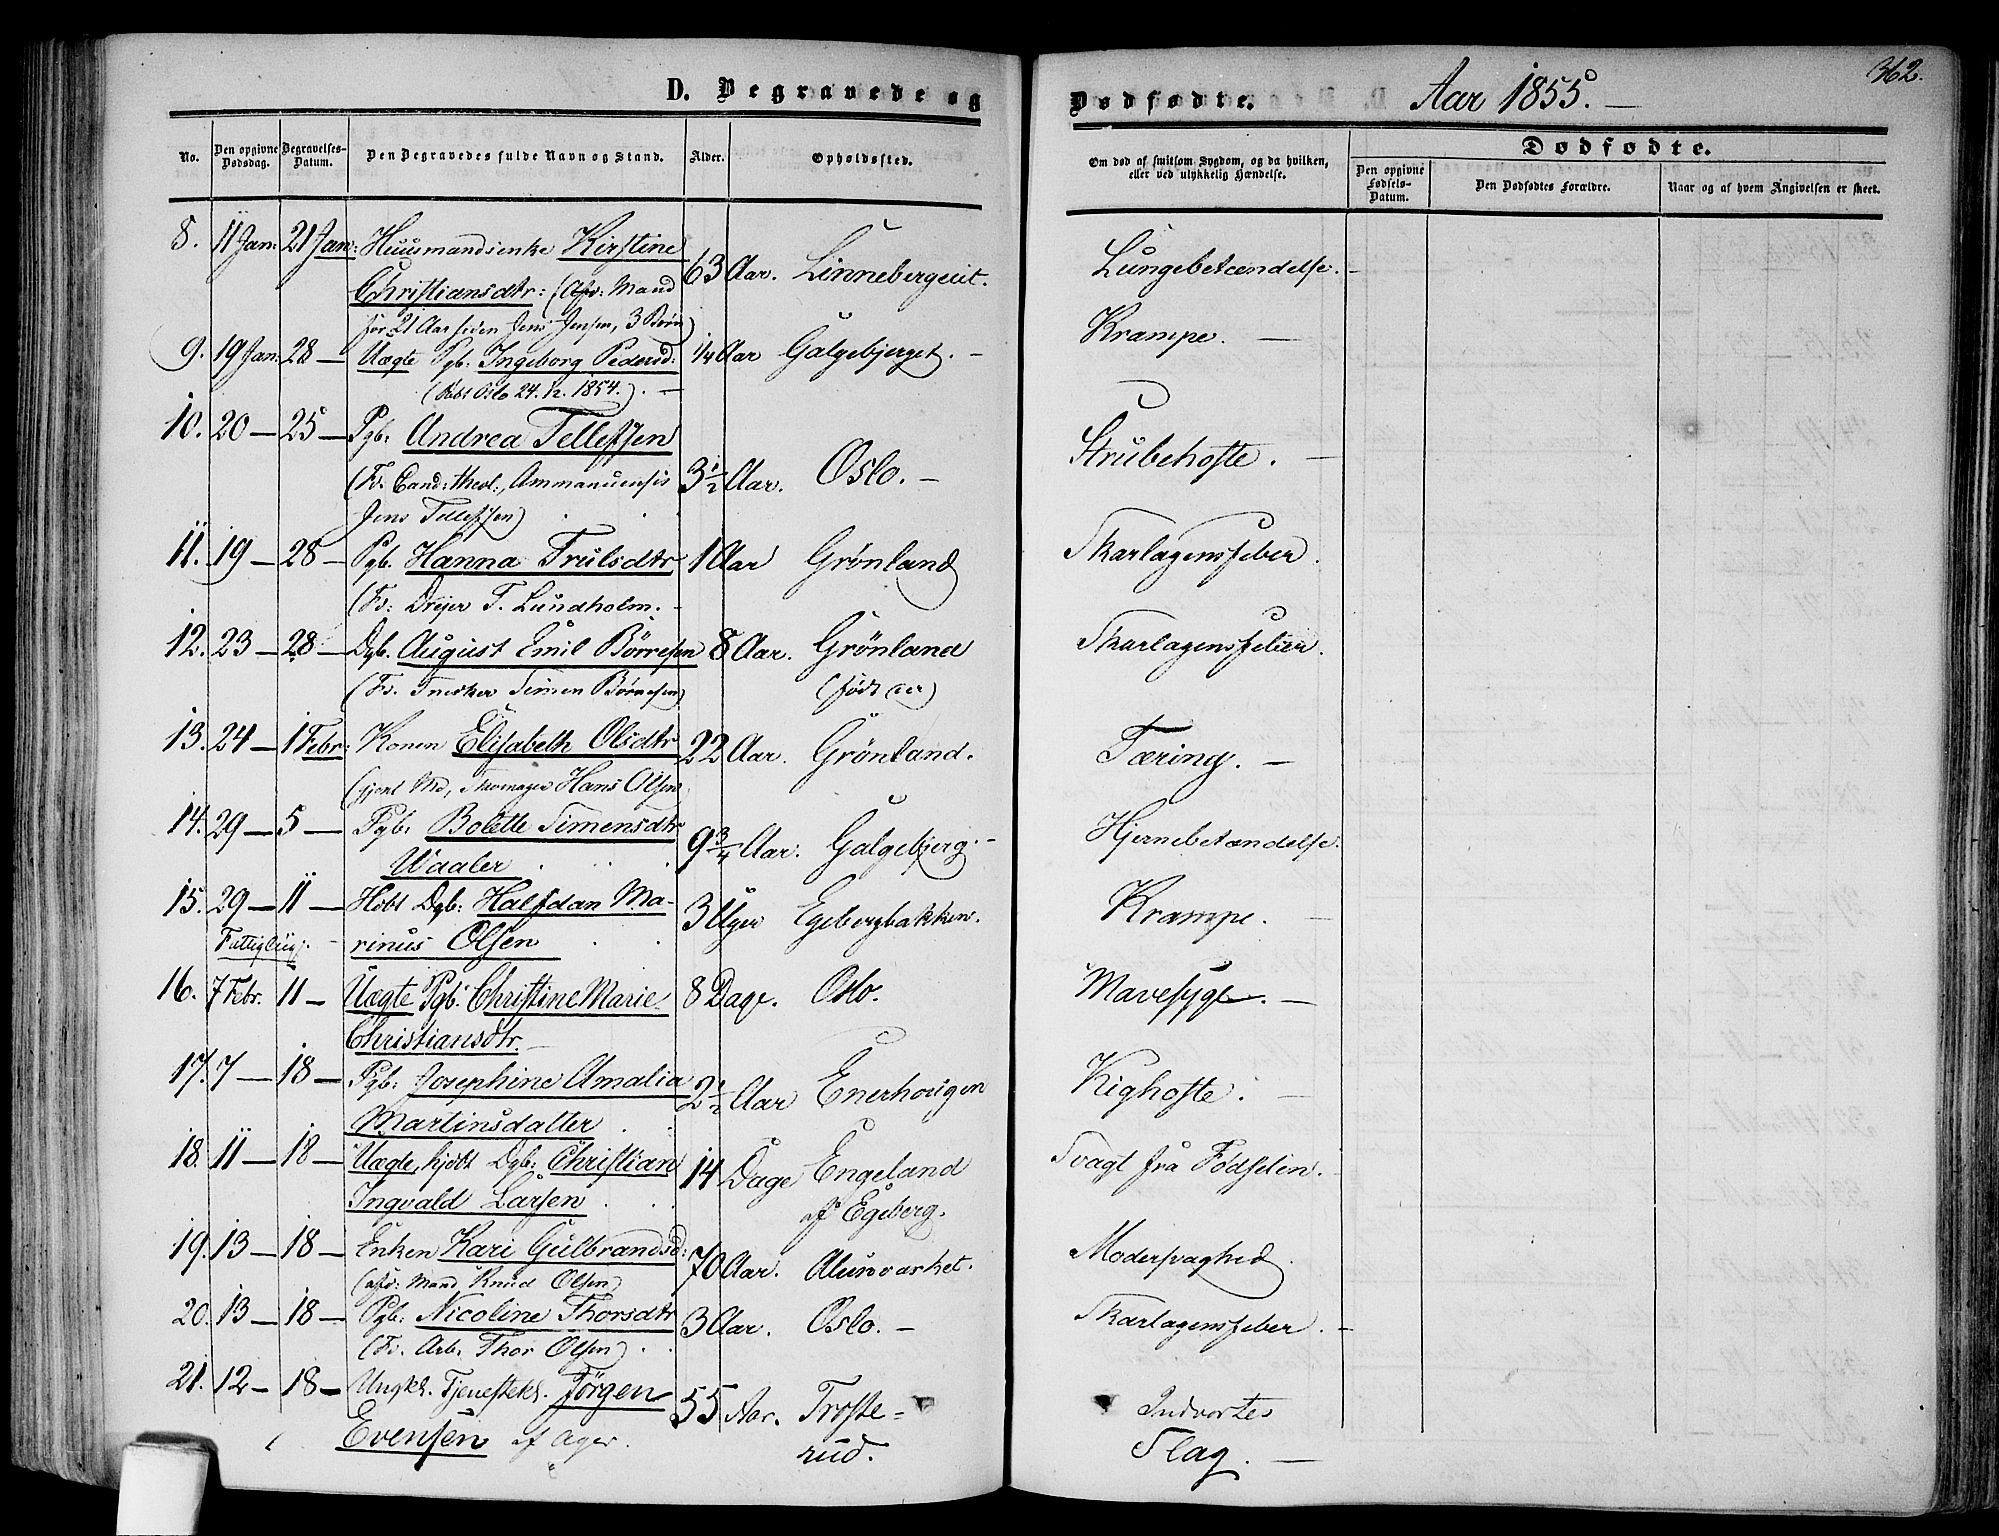 D. Begravede og
Dødfødte. Aar 1855. 362.
No. Den opgivne Dødsdag. Begravelses-Datum. Den Begravedes fulde Navn og Stand. Alder. Opholdssted.
Om død af smitsom Sygdom, og da hvilken, eller ved ulykkelig Hændelse.
Dødfødte.
Den opgivne Fødsels-Datum. Den Dødfødtes Forældre. Naar og af hvem Angivelsen er skeet.
8. 11 Jan: 21 Jan: Huusmandsenke Kirstine
Christiansdtr: (Afd: Mand 63 Aar. Linnebergeiet. Lungebetændelse.
før 21 Aar siden Jens Jensen, 3 Børn)
9. 19 Jan: 28 — Uægte Pgb. Ingeborg Pedersd: 1/4 Aar Galgebjerget. Krampe.
(Døbt Oslo 24. 12. 1854.)
10. 20 — 25 — Pgb: Andrea Tellefsen
(F. Cand: theol:, Ammanuensis 3 1/2 Aar. Oslo. Strubehoste.
Jens Tellefsen)
11. 19 — 28 — Pgb. Hanna Trulsdtr 1 Aar Grønland Skarlagensfeber.
(F: Dreier T. Lundholm.
12. 23 — 28 — Dgb. August Emil Børresen 8 Aar. Grønland Skarlagensfeber.
(F. Snedker Simen Børresen) (født der)
13. 24 — 1 Febr: Konen Elisabeth Olsdtr 22 Aar. Grønland. Tæring.
(gjent Md, Skomager Hans Olsen
14. 29 — 5 — Pgb: Bolette Simensdtr 9 3/4 Aar. Galgebjerg. Hjernebetændelse.
Waaler
15. 29 — 11 — Høbt Dgb: Halfdan Ma- 3 Uger Egebergbakken. Krampe.
rinus Olsen
16. 7 Febr. 11 — Uægte Pgb. Christine Marie 8 Dage. Oslo. Mavesyge.
Christiansdtr.
17. 7 — 18 — Pgb: Josephine Amalia 2 1/2 Aar Enerhougen Kighoste.
Martinsdatter
18. 11 — 18 — Uægte, hjdbt Dgb: Christian 14 Dage Engeland Svagt fra Fødselen.
Ingvald Larsen af Egeberg.
19. 13 — 18 — Enken Kari Gulbrandsd: 70 Aar. Alunværket. Modersvaghed.
(afd: Mand Knud Olsen)
20. 13 — 18 — Pgb: Nicoline Thorsdtr 3 Aar. Oslo. Skarlagensfeber.
(F. Arb. Thor Olsen)
21. 12 — 18 — Ungkl. Tjenestekl. Jørgen 55 Aar. Troste= Indvortes
Evensen af Ager. rud. Slag.